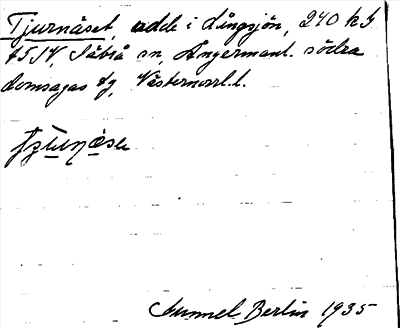 Tjurnäset, udde i Långsjön, 240 k S
15 IV, Säbrå sn, Ångermanl. södra
domsagas tg, Västernorrl. l.
Gunnel Berlin 1935